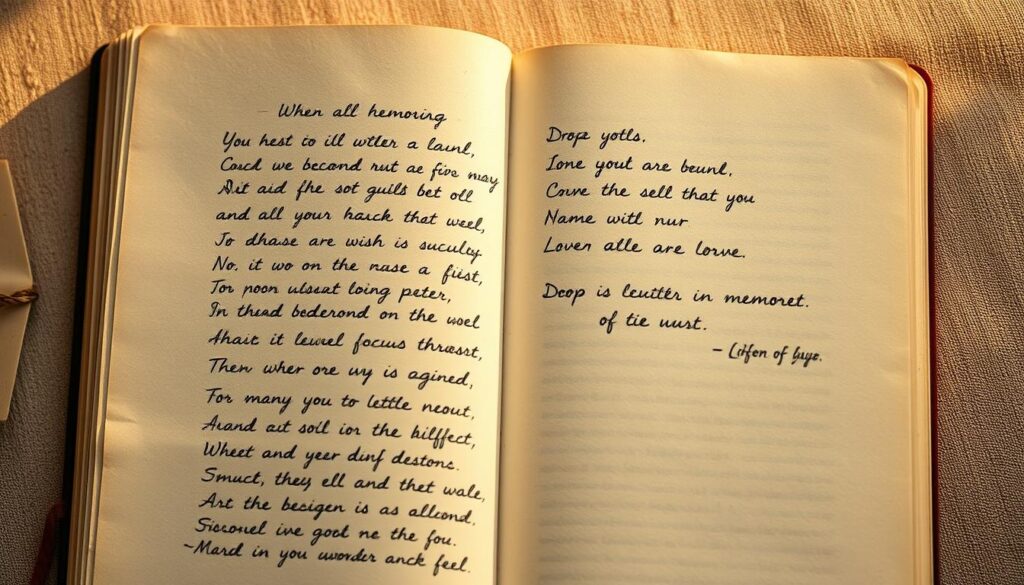 When all hemoring
You hest to ill wtler a launl,
Coucl we becand rut ae five may
Ait aid fhe sot guilt bet oll
and all your hauck that weel,
Jo dhase are wish is suculty.
No. it wo on the nase a fiist,
Tor poon ulseat loing peter,
In thead bederond on the woel
Ahait it leuel focus threast,
Then wher ore wy is agined,
For many you to lettle neout,
Arand aet soil ior the bilffect,
Wheet and yeer dinf destonc.
Smuct, they ell and thet wale,
Art the becigen is as allcond.
Siscouel ive goot ne the fou.
-Mard in you uworder anck feel.
Drope yotls.
Ione yout are beunl,
Corve the sell that you
Name witl nur
Loven alle are lorve.
Deop is leutter in memoret.
of tie wust.
– of